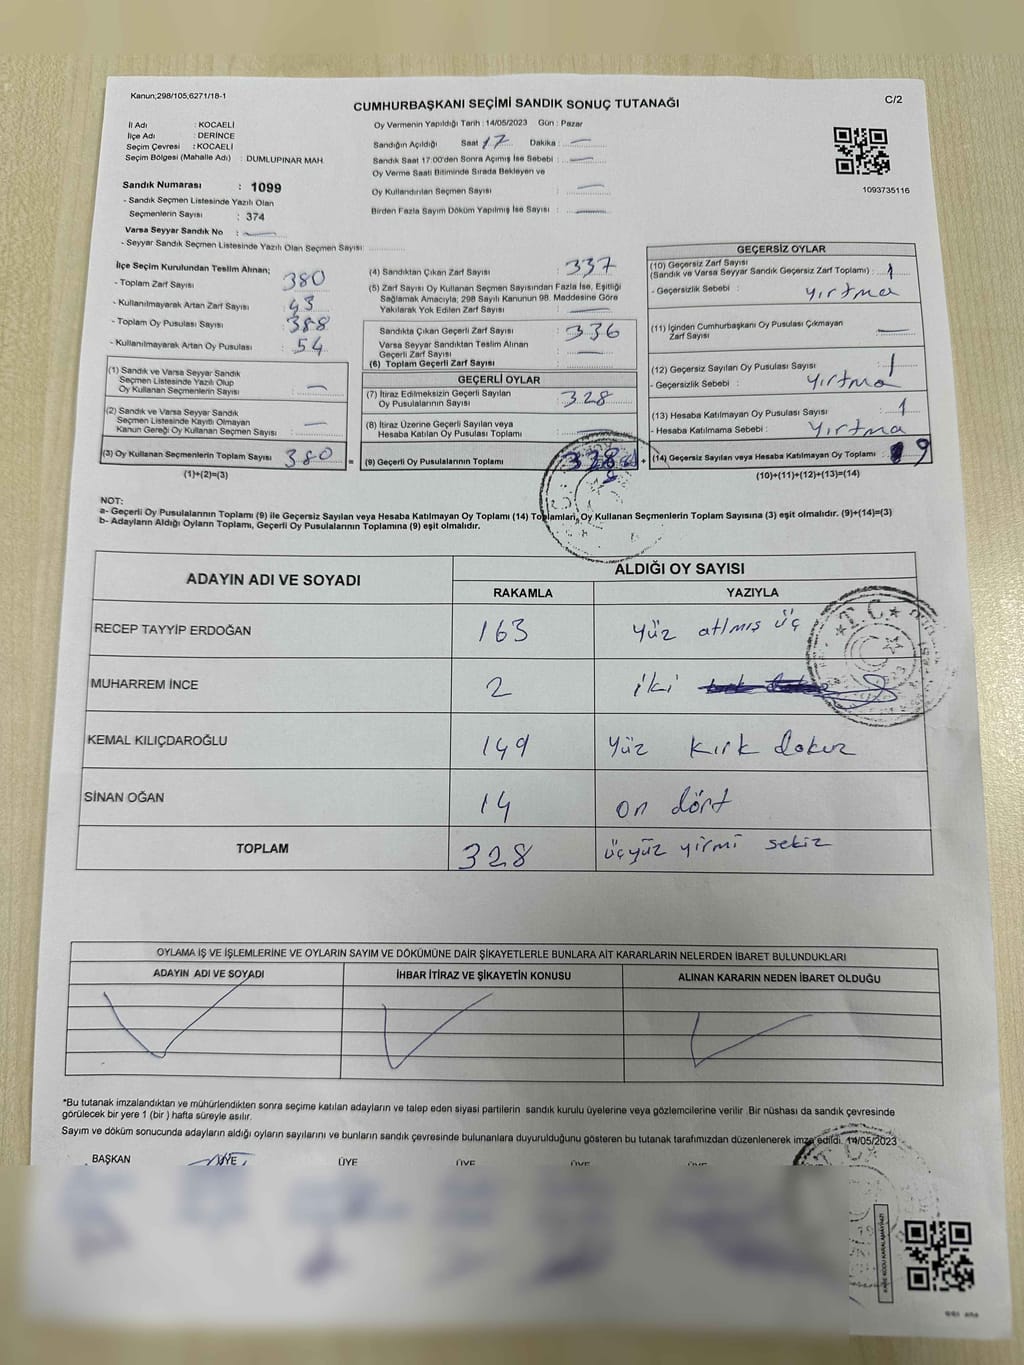 Kanun;298/105,6271/18-1
CUMHURBAŞKANI SEÇİMİ SANDIK SONUÇ TUTANAĞI
C/2
İl Adı : KOCAELİ
İlçe Adı : DERİNCE
Seçim Çevresi : KOCAELİ
Seçim Bölgesi (Mahalle Adı) : DUMLUPINAR MAH.
Sandık Numarası : 1099
- Sandık Seçmen Listesinde Yazılı Olan
Seçmenlerin Sayısı : 374
Varsa Seyyar Sandık No : —
- Seyyar Sandık Seçmen Listesinde Yazılı Olan Seçmen Sayısı:
Oy Vermenin Yapıldığı Tarih : 14/05/2023 Gün : Pazar
Sandığın Açıldığı Saat 17 Dakika : —
Sandık Saat 17:00'den Sonra Açımış İse Sebebi : —
Oy Verme Saati Bitiminde Sırada Bekleyen ve
Oy Kullandırılan Seçmen Sayısı : —
Birden Fazla Sayım Döküm Yapılmış İse Sayısı : —
1093735116
İlçe Seçim Kurulundan Teslim Alınan;
- Toplam Zarf Sayısı : 380
- Kullanılmayarak Artan Zarf Sayısı : 43
- Toplam Oy Pusulası Sayısı : 388
- Kullanılmayarak Artan Oy Pusulası : 54
(1) Sandık ve Varsa Seyyar Sandık
Seçmen Listesinde Yazılı Olup
Oy Kullanan Seçmenlerin Sayısı : —
(2) Sandık ve Varsa Seyyar Sandık
Seçmen Listesinde Kayıtlı Olmayan
Kanun Gereği Oy Kullanan Seçmen Sayısı : —
(3) Oy Kullanan Seçmenlerin Toplam Sayısı : 380
(1)+(2)=(3)
(4) Sandıktan Çıkan Zarf Sayısı : 337
(5) Zarf Sayısı Oy Kullanan Seçmen Sayısından Fazla İse, Eşitliği
Sağlamak Amacıyla; 298 Sayılı Kanunun 98. Maddesine Göre
Yakılarak Yok Edilen Zarf Sayısı : —
Sandıkta Çıkan Geçerli Zarf Sayısı : 336
Varsa Seyyar Sandıktan Teslim Alınan
Geçerli Zarf Sayısı : —
(6) Toplam Geçerli Zarf Sayısı :
GEÇERLİ OYLAR
(7) İtiraz Edilmeksizin Geçerli Sayılan
Oy Pusulalarının Sayısı : 328
(8) İtiraz Üzerine Geçerli Sayılan veya
Hesaba Katılan Oy Pusulası Toplamı : —
= (9) Geçerli Oy Pusulalarının Toplamı :
GEÇERSİZ OYLAR
(10) Geçersiz Zarf Sayısı
(Sandık ve Varsa Seyyar Sandık Geçersiz Zarf Toplamı) : 1
- Geçersizlik Sebebi : yırtma
(11) İçinden Cumhurbaşkanı Oy Pusulası Çıkmayan
Zarf Sayısı : —
(12) Geçersiz Sayılan Oy Pusulası Sayısı : 1
- Geçersizlik Sebebi : yırtma
(13) Hesaba Katılmayan Oy Pusulası Sayısı : 1
- Hesaba Katılmama Sebebi : yırtma
+ (14) Geçersiz Sayılan veya Hesaba Katılmayan Oy Toplamı : 9
(10)+(11)+(12)+(13)=(14)
NOT:
a- Geçerli Oy Pusulalarının Toplamı (9) ile Geçersiz Sayılan veya Hesaba Katılmayan Oy Toplamı (14) Toplamları, Oy Kullanan Seçmenlerin Toplam Sayısına (3) eşit olmalıdır. (9)+(14)=(3)
b- Adayların Aldığı Oyların Toplamı, Geçerli Oy Pusulalarının Toplamına (9) eşit olmalıdır.
ADAYIN ADI VE SOYADI
ALDIĞI OY SAYISI
RAKAMLA YAZIYLA
RECEP TAYYİP ERDOĞAN 163 yüz atlmış üç
MUHARREM İNCE 2 iki
KEMAL KILIÇDAROĞLU 149 yüz kırk dokuz
SİNAN OĞAN 14 on dört
TOPLAM 328 üçyüz yirmi sekiz
T.C.
OYLAMA İŞ VE İŞLEMLERİNE VE OYLARIN SAYIM VE DÖKÜMÜNE DAİR ŞİKAYETLERLE BUNLARA AİT KARARLARIN NELERDEN İBARET BULUNDUKLARI
ADAYIN ADI VE SOYADI İHBAR İTİRAZ VE ŞİKAYETİN KONUSU ALINAN KARARIN NEDEN İBARET OLDUĞU
*Bu tutanak imzalandıktan ve mühürlendikten sonra seçime katılan adayların ve talep eden siyasi partilerin sandık kurulu üyelerine veya gözlemcilerine verilir .Bir nüshası da sandık çevresinde
görülecek bir yere 1 (bir ) hafta süreyle asılır.
Sayım ve döküm sonucunda adayların aldığı oyların sayılarını ve bunların sandık çevresinde bulunanlara duyurulduğunu gösteren bu tutanak tarafımızdan düzenlenerek imza edildi. 14/05/2023
BAŞKAN ÜYE ÜYE ÜYE ÜYE ÜYE
T.C.
KARE KODU KARALAMAYINIZ!